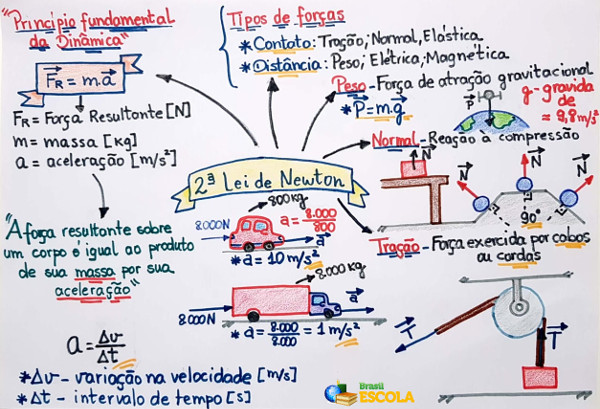 "Princípio fundamental
da Dinâmica"
F_R = m.a
F_R = Força Resultante [N]
m = massa [kg]
a = aceleração [m/s²]
"A força resultante sobre
um corpo é igual ao produto
de sua massa por sua
aceleração"
a = Δv/Δt
*Δv - variação na velocidade [m/s]
*Δt - intervalo de tempo [s]
Tipos de forças
*Contato: Tração, Normal, Elástica
*Distância: Peso, Elétrica, Magnética
Peso - Força de atração gravitacional
*P = m.g
P
g - gravida
de
≈ 9,8 m/s²
Normal - Reação à compressão
N
N
N
N
90°
Tração - Força exercida por cabos
ou cordas
T
T
2ª Lei de Newton
800 kg
8.000N
a = 8.000/800
a
*a = 10 m/s²
8.000 kg
8.000N
a
*a = 8.000/8.000 = 1 m/s²
Brasil
ESCOLA